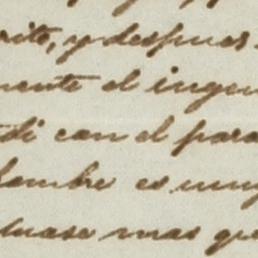 rito, y despues
mente el ingen
di con el para
hombre es muy
luase mas que